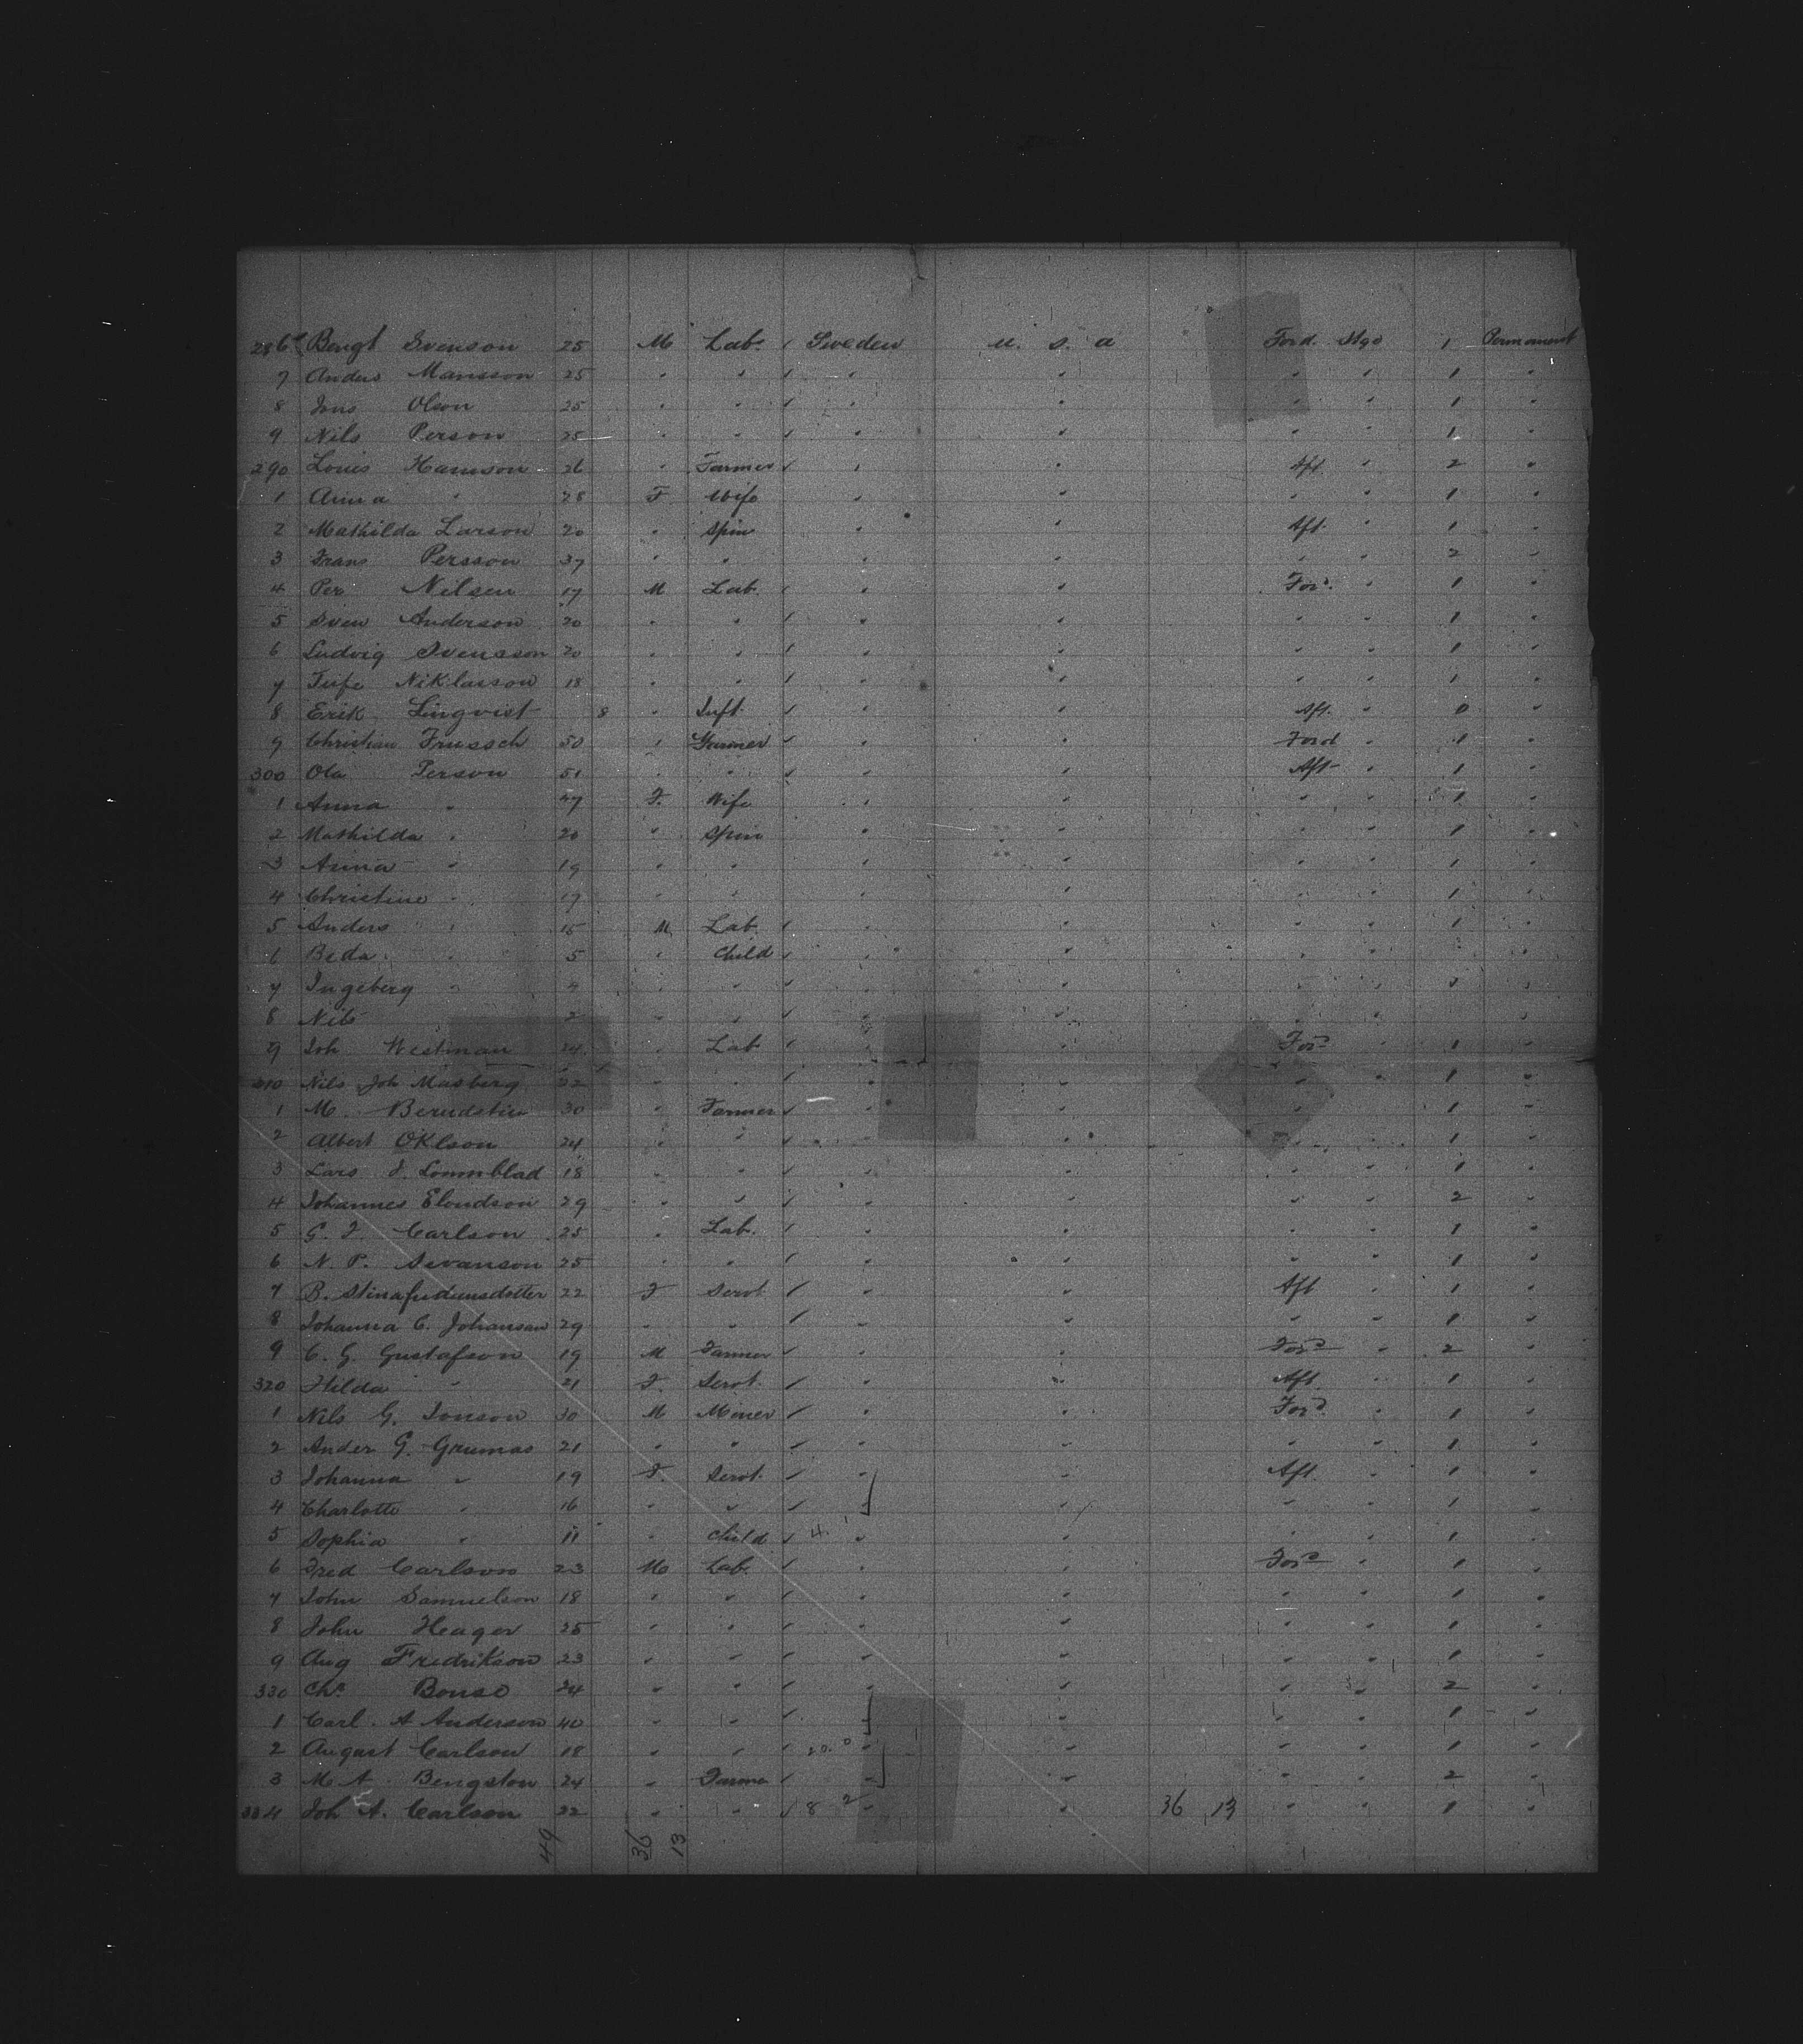 286 Bengt Svenson 25 M Lab. Sweden U. S. A Ford. Stge 1 Permanent
7 Anders Mansson 25 " " " " " " 1 "
8 Jons Olson 25 " " " " " " 1 "
9 Nils Person 25 " " " " " " 1 "
290 Louis Hanson 26 " Farmer " " Aft. " 2 "
1 Anna " 28 F Wife " " " " 1 "
2 Mathilda Larson 20 " Spin " " Aft. " 1 "
3 Frans Persson 37 " " " " " " 2 "
4 Per Nilsen 17 M Lab. " " For'd. " 1 "
5 Sven Anderson 20 " " " " " " 1 "
6 Ludvig Svensson 20 " " " " " " 1 "
7 Niklasson 18 " " " " " " 1 "
8 Erik Lingvist 8 " Inft. " " Aft. " 0 "
9 Christian 50 " Farmer " " Ford " 1 "
300 Ola Person 51 " " " " Aft " 1 "
1 Anna " 47 F. Wife " " " " 1 "
2 Mathilda " 20 " Spin " " " " 1 "
3 Anna " 19 " " " " " " 1 "
4 Christine " 17 " " " " " " 1 "
5 Anders " 15 M Lab. " " " " 1 "
6 Beda " 5 " Child " " " "
7 Ingeberg " 4 " " " " " "
8 Nils 2 " " " " " "
9 Joh. Westman 24 " Lab " " For'd " 1 "
310 Nils Joh Masberg 22 " " " " " " 1 "
1 M. Berndstin 30 " Farmer " " " " 1 "
2 Albert Oklson 24 " " " " " " 1 "
3 Lars J. Lonnblad 18 " " " " " " 1 "
4 Johannes Elondson 29 " " " " " " 2 "
5 G. F. Carlson 25 " Lab. " " " " 1 "
6 N. P. Swanson 25 " " " " " " 1 "
7 B. 22 F Servt " " Aft " 1 "
8 Johanna C. Johanson 29 " " " " " " 1 "
9 C. G. Gustafson 19 M Farmer " " For'd " 2 "
320 Hilda " 21 F. Servt. " " Aft. " 1 "
1 Nils G. Jonson 30 M Miner " " For'd " 1 "
2 Ander G. Grumas 21 " " " " " " 1 "
3 Johanna " 19 F. Servt. " " Aft. " 1 "
4 Charlotte " 16 " " " " " " 1 "
5 Sophia " 11 " Child 4. " " " " 1 "
6 Fred Carlson 23 M Lab. " " For'd " 1 "
7 John Samuelson 18 " " " " " " 1 "
8 John Heager 25 " " " " " " 1 "
9 Aug Fredrikson 23 " " " " " " 1 "
330 Chs. Bonse 24 " " " " " " 2 "
1 Carl. A Anderson 40 " " " " " " 1 "
2 August Carlson 18 " " 20. 0 " " " " 1 "
3 M A. Bengston 24 " Farmer " " " " 2 "
334 Joh A. Carlson 22 " " 8 2 " " 36 13 " " 1 "
49 36 13